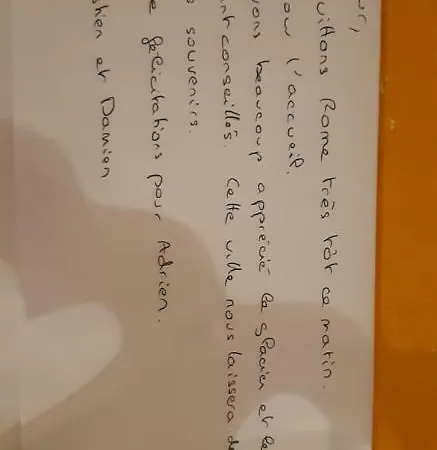 ur,
uittons Rome très tôt ce matin.
our l'accueil.
vons beaucoup apprécié le glacier et le
ant conseillés. Cette ville nous laissera de
s souvenirs.
e félicitations pour Adrien.
stien et Damien